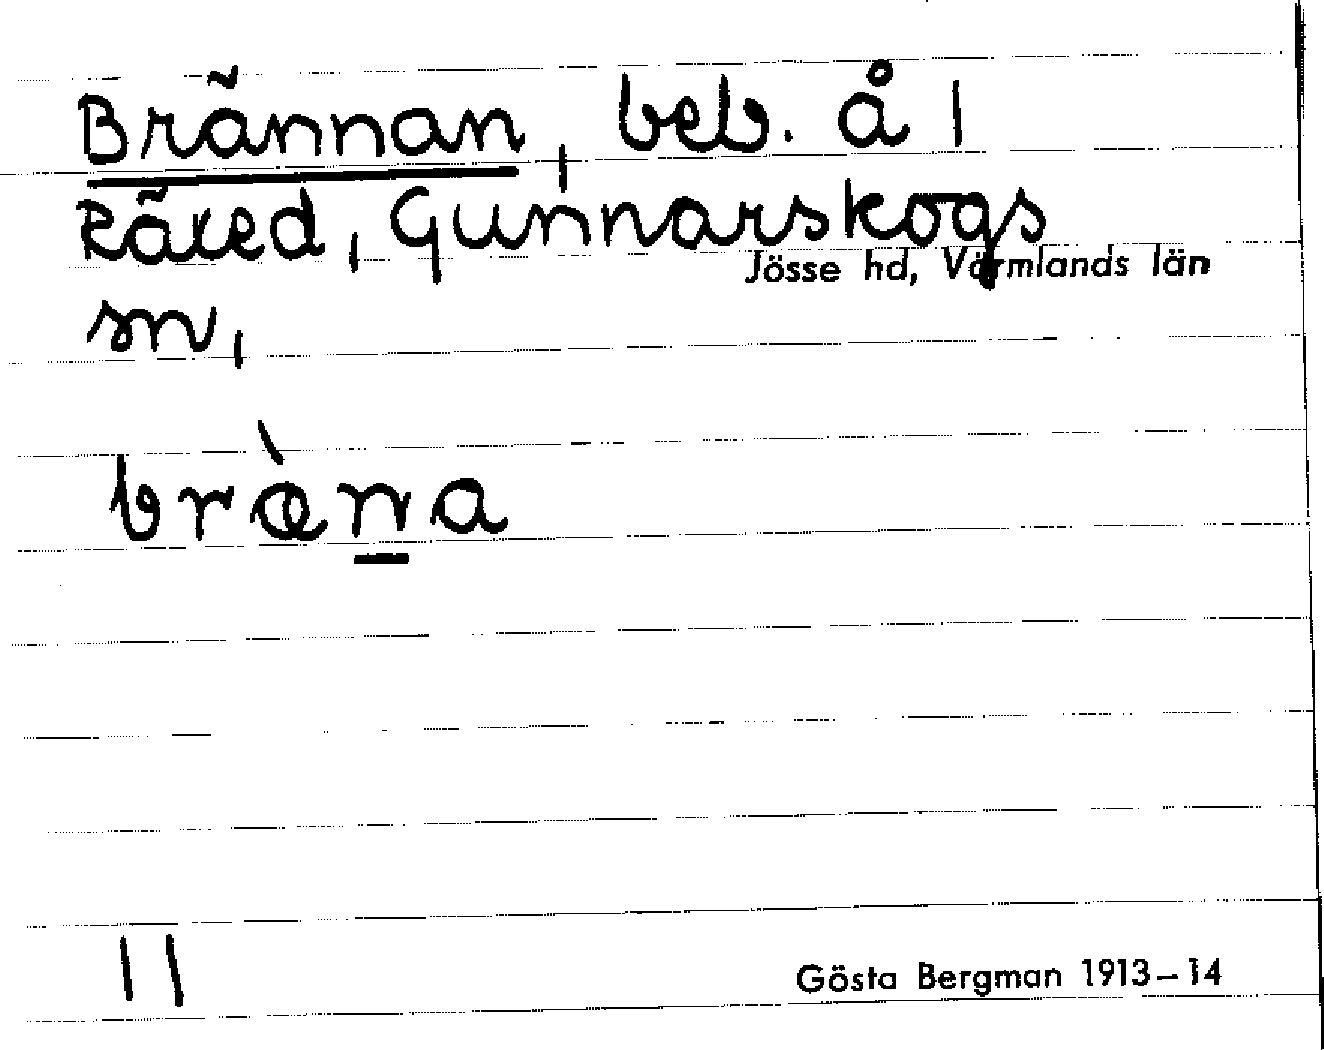 Brännan, beb. å 1
Räxed, Gunnarskogs
Jösse hd, Värmlands län
sn,
bræ̀n̲a
11
Gösta Bergman 1913–14